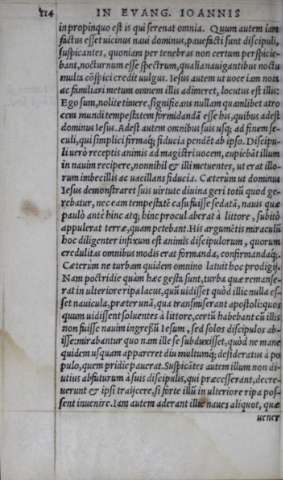 114 IN EVANG. IOANNIS
in propinquo est is qui serenat omnia. Quum autem iam
factus esset uicinus naui dominus, pauefacti sunt discipuli,
suspicantes, quoniam per tenebras non certum perspicie-
bant, nocturnum esse spectrum, qualia nauigantibus noctu
multa cōspici credit uulgus. Iesus autem ut uoce iam notæ
ac familiari metum omnem illis adimeret, locutus est illis:
Ego sum, nolite timere, significans nullam quamlibet atro
cem mundi tempestatem formidandā esse his, quibus adest
dominus Iesus. Adest autem omnibus suis usq; ad finem se-
culi, qui simplici firmaq; fiducia pendēt ab ipso. Discipu-
li uerò receptis animis ad magistri uocem, cupiebāt illum
in nauim recipere, nonnihil & illi metuentes, ut erat illo-
rum imbecillis ac uacillans fiducia. Cæterùm ut dominus
Iesus demonstraret suis uirtute diuina geri totū quod ge-
rebatur, nec eam tempestatē casu fuisse sedatā, nauis quæ
paulò antè hinc atq; hinc procul aberat à littore, subitò
appulerat terræ, quam petebant. His argumētis miraculū
hoc diligenter infixum est animis discipulorum, quorum
credulitas omnibus modis erat formanda, confirmandaq;.
Cæterùm ne turbam quidem omnino latuit hoc prodigij.
Nam postridie quàm hæc gesta sunt, turba quæ remanse-
rat in ulteriore ripa lacus, quū uidisset quòd illic nulla es-
set nauicula, præter unā, qua transmiserant apostoli: quos
quum uidissent soluentes à littore, certū habebant cū illis
non fuisse nauim ingressū Iesum, sed solos discipulos ab-
isse: mirabantur quo nam ille se subduxisset, quòd ne mane
quidem usquam appareret diu multumq; desideratus à po
pulo, quem pridie pauerat. Suspicātes autem illum non di-
utius abfuturum à suis discipulis, qui præcesserant, decre-
uerunt & ipsi traijcere, si forte illū in ulteriore ripa pos-
sent inuenire. Iam autem aderant illic naues aliquot, quæ
uener